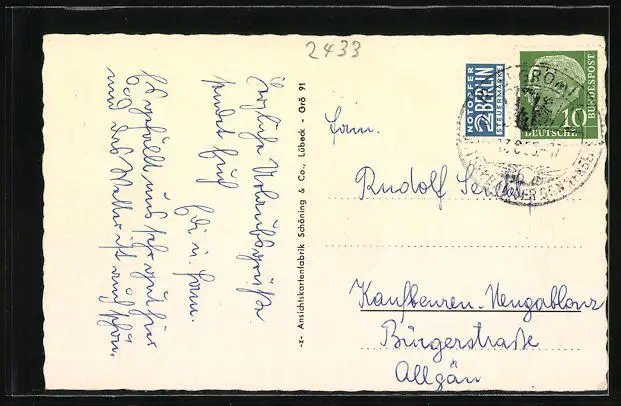 2433
Herzliche Urlaubsgrüße
sendet Euch
Edi u. Fam.
Es gefällt uns sehr gut hier
und das Wetter ist auch schön.
-z- Ansichtskartenfabrik Schöning & Co., Lübeck - Grö 91
NOTOPFER
2 BERLIN
STEUERMARKE
10
DEUTSCHE
BUNDESPOST
Fam.
Rudolf
Kaufbeuren-Neugablonz
Bürgerstraße
Allgäu